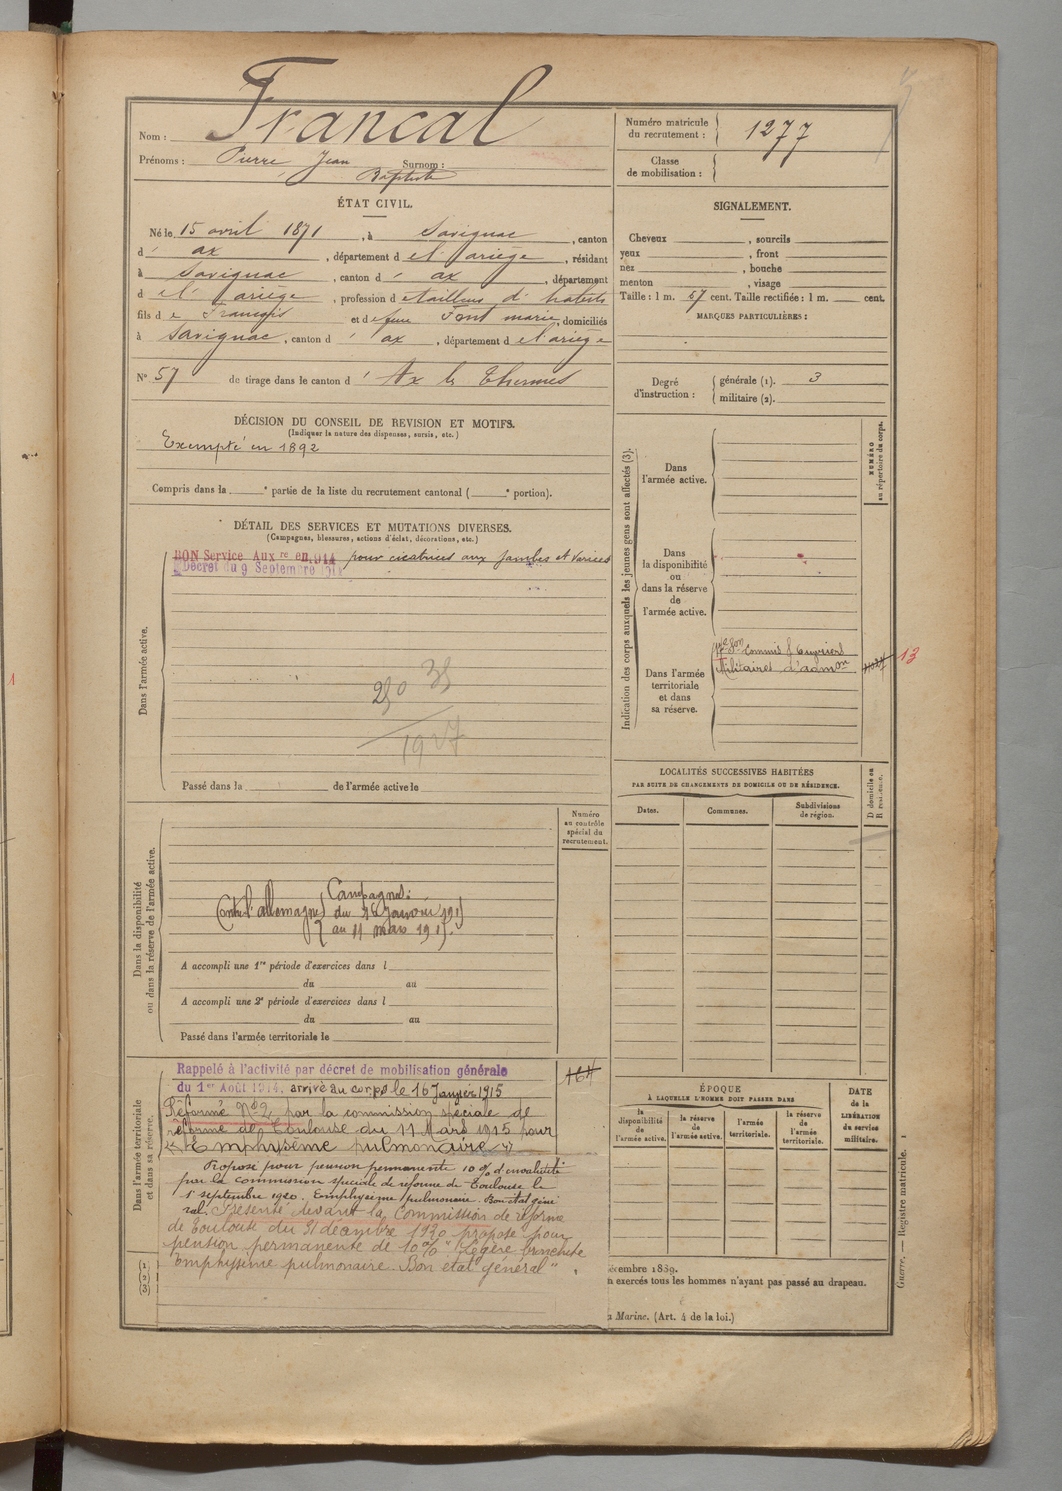 Nom : Francal
Prénoms : Pierre Jean Surnom :
Baptiste
ÉTAT CIVIL.
Né le 15 avril 1871, à Savignac, canton
d' ax, département d e l'ariège, résidant
à Savignac, canton d' ax, département
d e l' ariège, profession d e tailleur d' habits
fils d e François et d e feue Font marie, domiciliés
à Savignac, canton d' ax, département d e l'ariège
N° 57 de tirage dans le canton d' Ax les Thermes
DÉCISION DU CONSEIL DE REVISION ET MOTIFS.
(Indiquer la nature des dispenses, sursis, etc.)
Exempté en 1892
Compris dans la e partie de la liste du recrutement cantonal ( e portion).
DÉTAIL DES SERVICES ET MUTATIONS DIVERSES.
(Campagnes, blessures, actions d'éclat, décorations, etc.)
BON Service Aux re en 1914 pour cicatrices aux jambes et varices
Décret du 9 Septembre 1914
Dans l'armée active.
250 38
1927
Passé dans la de l'armée active le
Numéro
au contrôle
spécial du
recrutement.
Dans la disponibilité
ou dans la réserve de l'armée active.
Campagnes :
Contre l'allemagne du 16 Janvier 1915
au 11 mars 1915.
A accompli une 1re période d'exercices dans l
du au
A accompli une 2e période d'exercices dans l
du au
Passé dans l'armée territoriale le
Dans l'armée territoriale
et dans sa réserve.
Rappelé à l'activité par décret de mobilisation générale
164
du 1er Août 1914. arrivé au corps le 16 Janvier 1915
Réformé N°2 par la commission spéciale de
réforme de Toulouse du 11 Mars 1915 pour
"Emphysème pulmonaire"
Proposé pour pension permanente 10 % d'invalidité
par la commission spéciale de réforme de Toulouse le
1er septembre 1920. Emphysème pulmonaire. Bon état géné
ral. Présenté devant la Commission de réforme
de Toulouse du 31 décembre 1920 proposé pour
pension permanente de 10% "Légère bronchite
Emphysème pulmonaire. Bon état général".
(1)
(2)
(3)
Numéro matricule
du recrutement : 1277
Classe
de mobilisation :
SIGNALEMENT.
Cheveux , sourcils
yeux , front
nez , bouche
menton , visage
Taille : 1 m. 57 cent. Taille rectifiée : 1 m. cent.
MARQUES PARTICULIÈRES :
Degré
d'instruction :
générale (1). 3
militaire (2).
Indication des corps auxquels les jeunes gens sont affectés (3).
NUMÉRO
au répertoire du corps.
Dans
l'armée active.
Dans
la disponibilité
ou
dans la réserve
de
l'armée active.
Dans l'armée
territoriale
et dans
sa réserve.
17e Son Commis & Ouvriers
Militaires d'admon
13
LOCALITÉS SUCCESSIVES HABITÉES
PAR SUITE DE CHANGEMENTS DE DOMICILE OU DE RÉSIDENCE.
D domicile ou
R résidence.
Dates.
Communes.
Subdivisions
de région.
ÉPOQUE
À LAQUELLE L'HOMME DOIT PASSER DANS
DATE
de la
LIBÉRATION
du service
militaire.
la
disponibilité
de
l'armée active.
la réserve
de
l'armée active.
l'armée
territoriale.
la réserve
de
l'armée
territoriale.
écembre 1889.
n exercés tous les hommes n'ayant pas passé au drapeau.
a Marine. (Art. 4 de la loi.)
Guerre. — Registre matricule. 1
1